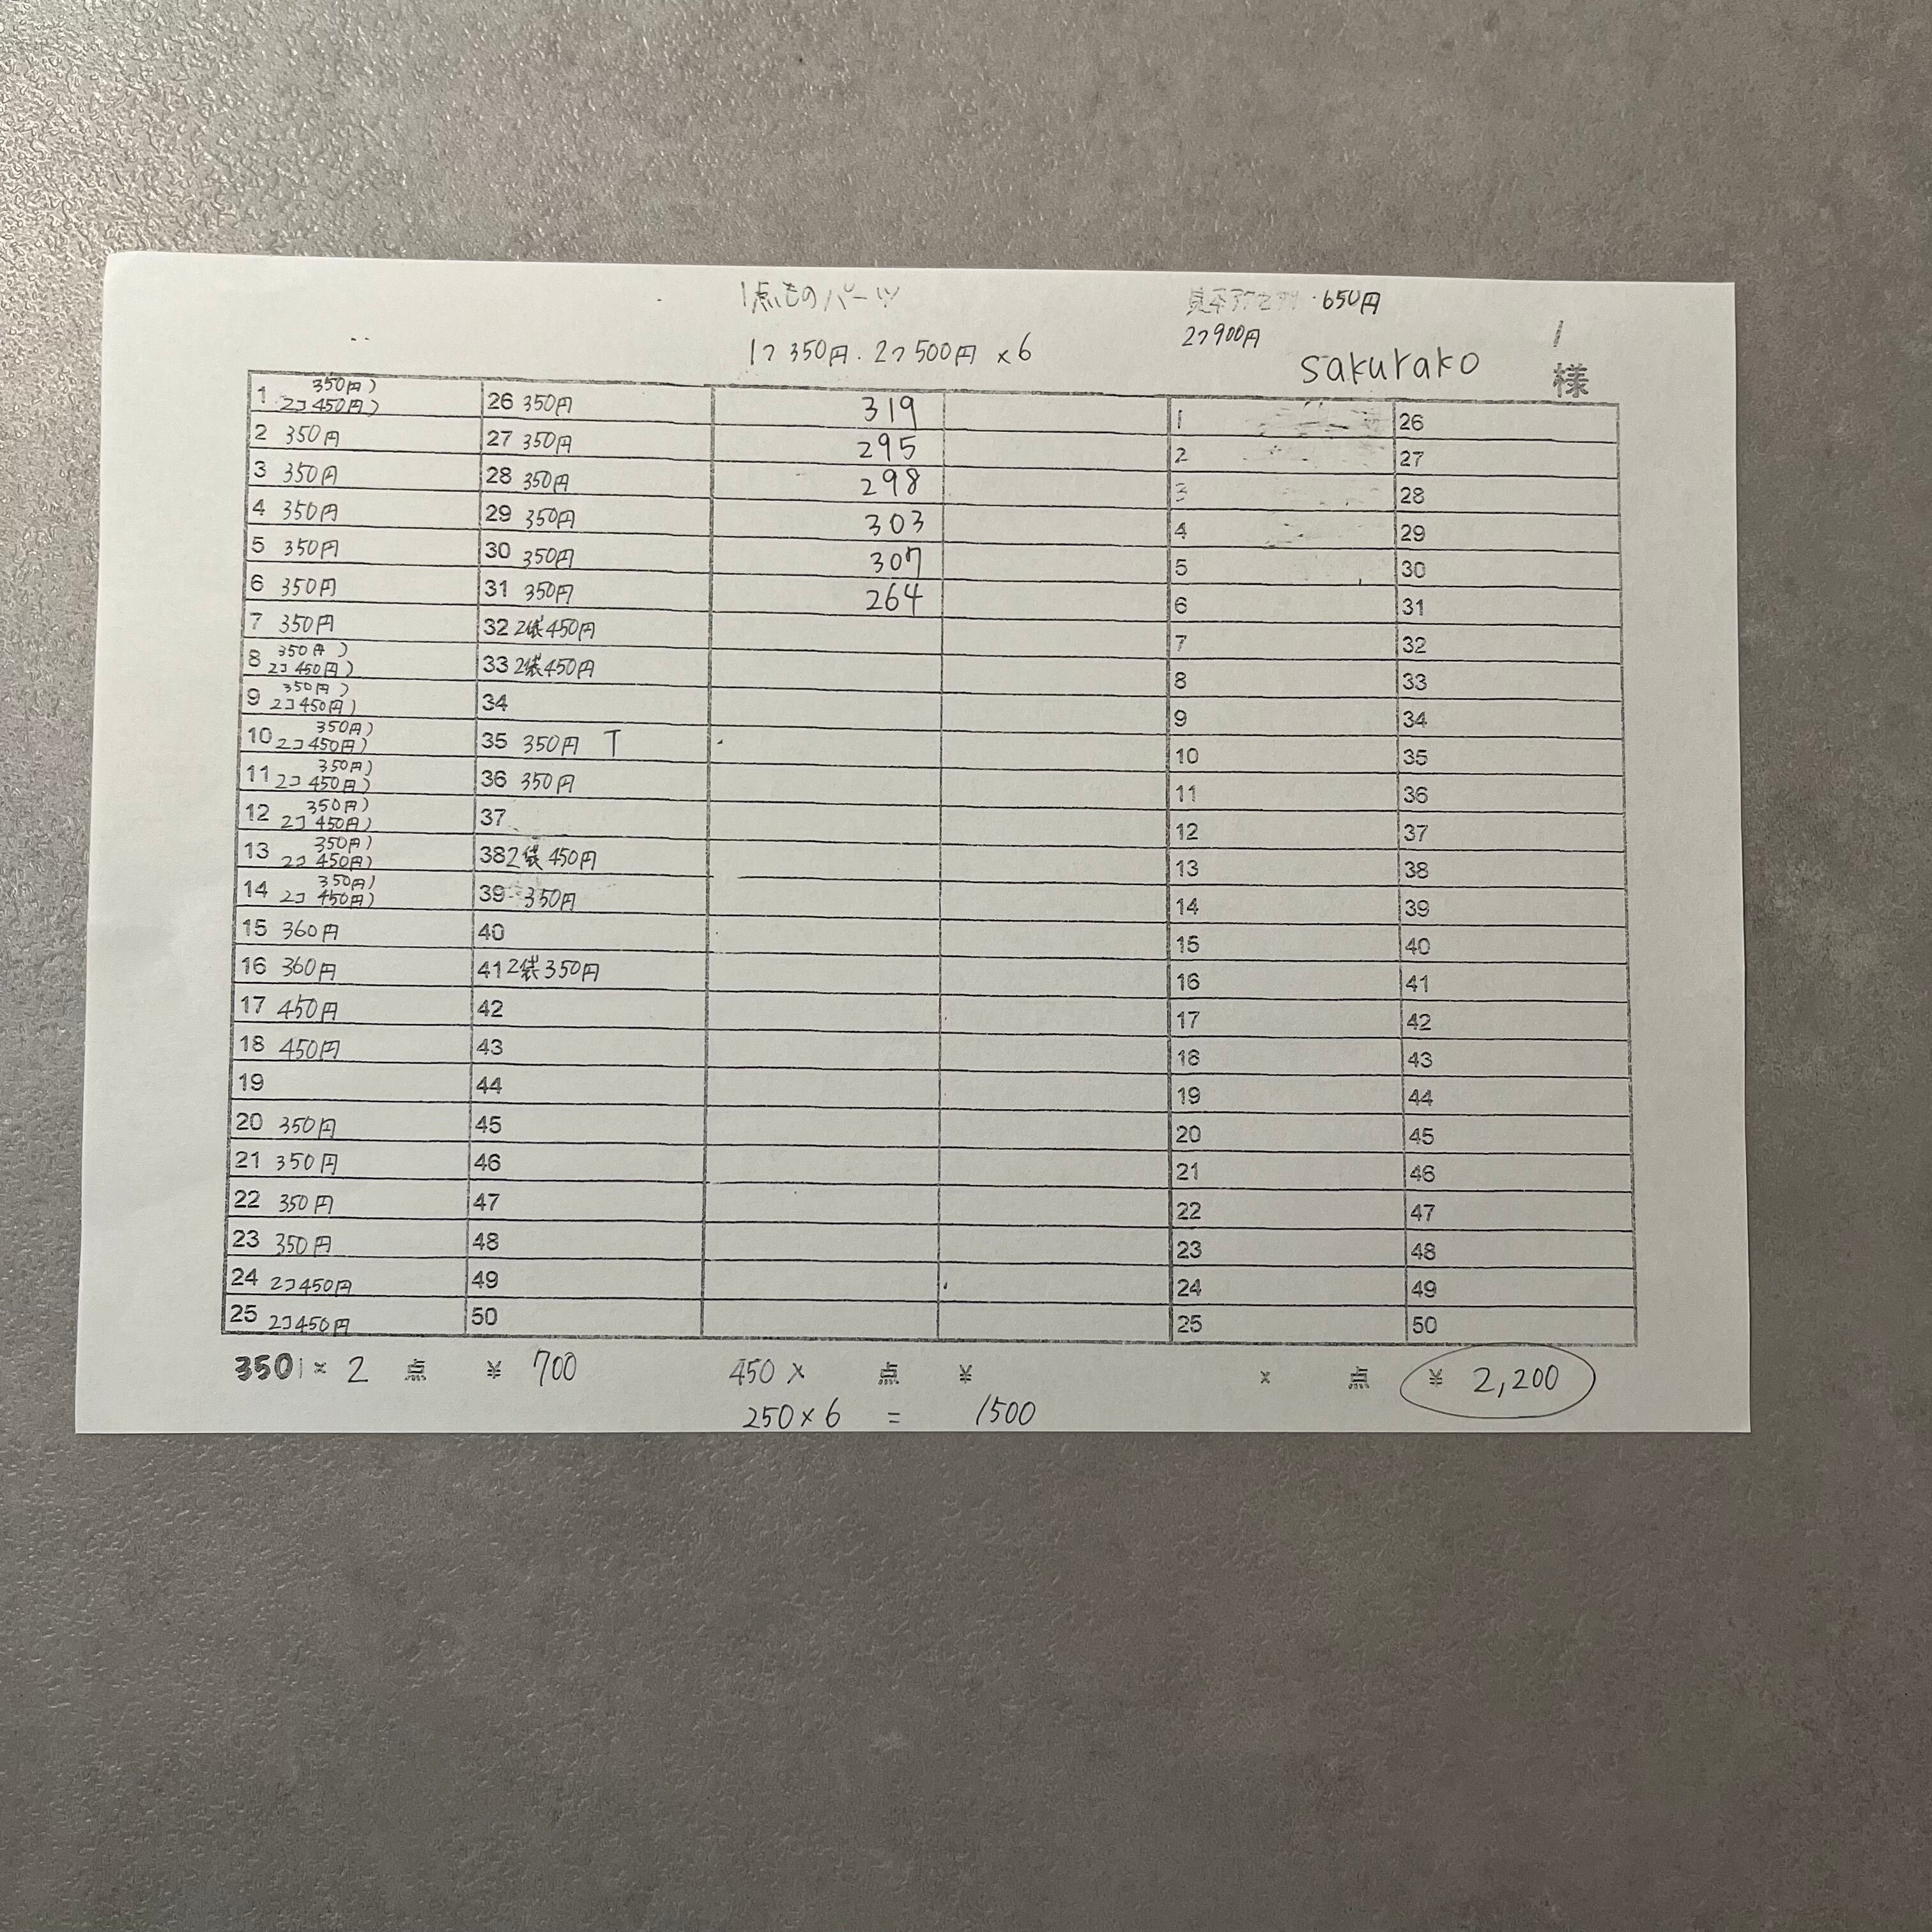 1点ものパーツ
・650円
1つ 350円・2つ 500円 ×6
2つ900円
sakurako 様
1 350円) 2コ 450円) 26 350円 319 1 26
2 350円 27 350円 295 2 27
3 350円 28 350円 298 3 28
4 350円 29 350円 303 4 29
5 350円 30 350円 307 5 30
6 350円 31 350円 264 6 31
7 350円 32 2袋 450円 7 32
8 350円) 2コ 450円) 33 2袋 450円 8 33
9 350円) 2コ 450円) 34 9 34
10 350円) 2コ 450円) 35 350円 T 10 35
11 350円) 2コ 450円) 36 350円 11 36
12 350円) 2コ 450円) 37 12 37
13 350円) 2コ 450円) 38 2袋 450円 13 38
14 350円) 2コ 450円) 39 350円 14 39
15 360円 40 15 40
16 360円 41 2袋 350円 16 41
17 450円 42 17 42
18 450円 43 18 43
19 44 19 44
20 350円 45 20 45
21 350円 46 21 46
22 350円 47 22 47
23 350円 48 23 48
24 2コ450円 49 24 49
25 2コ450円 50 25 50
350 × 2 点 ¥ 700 450 × 点 ¥ × 点 ¥ 2,200
250×6 = 1500